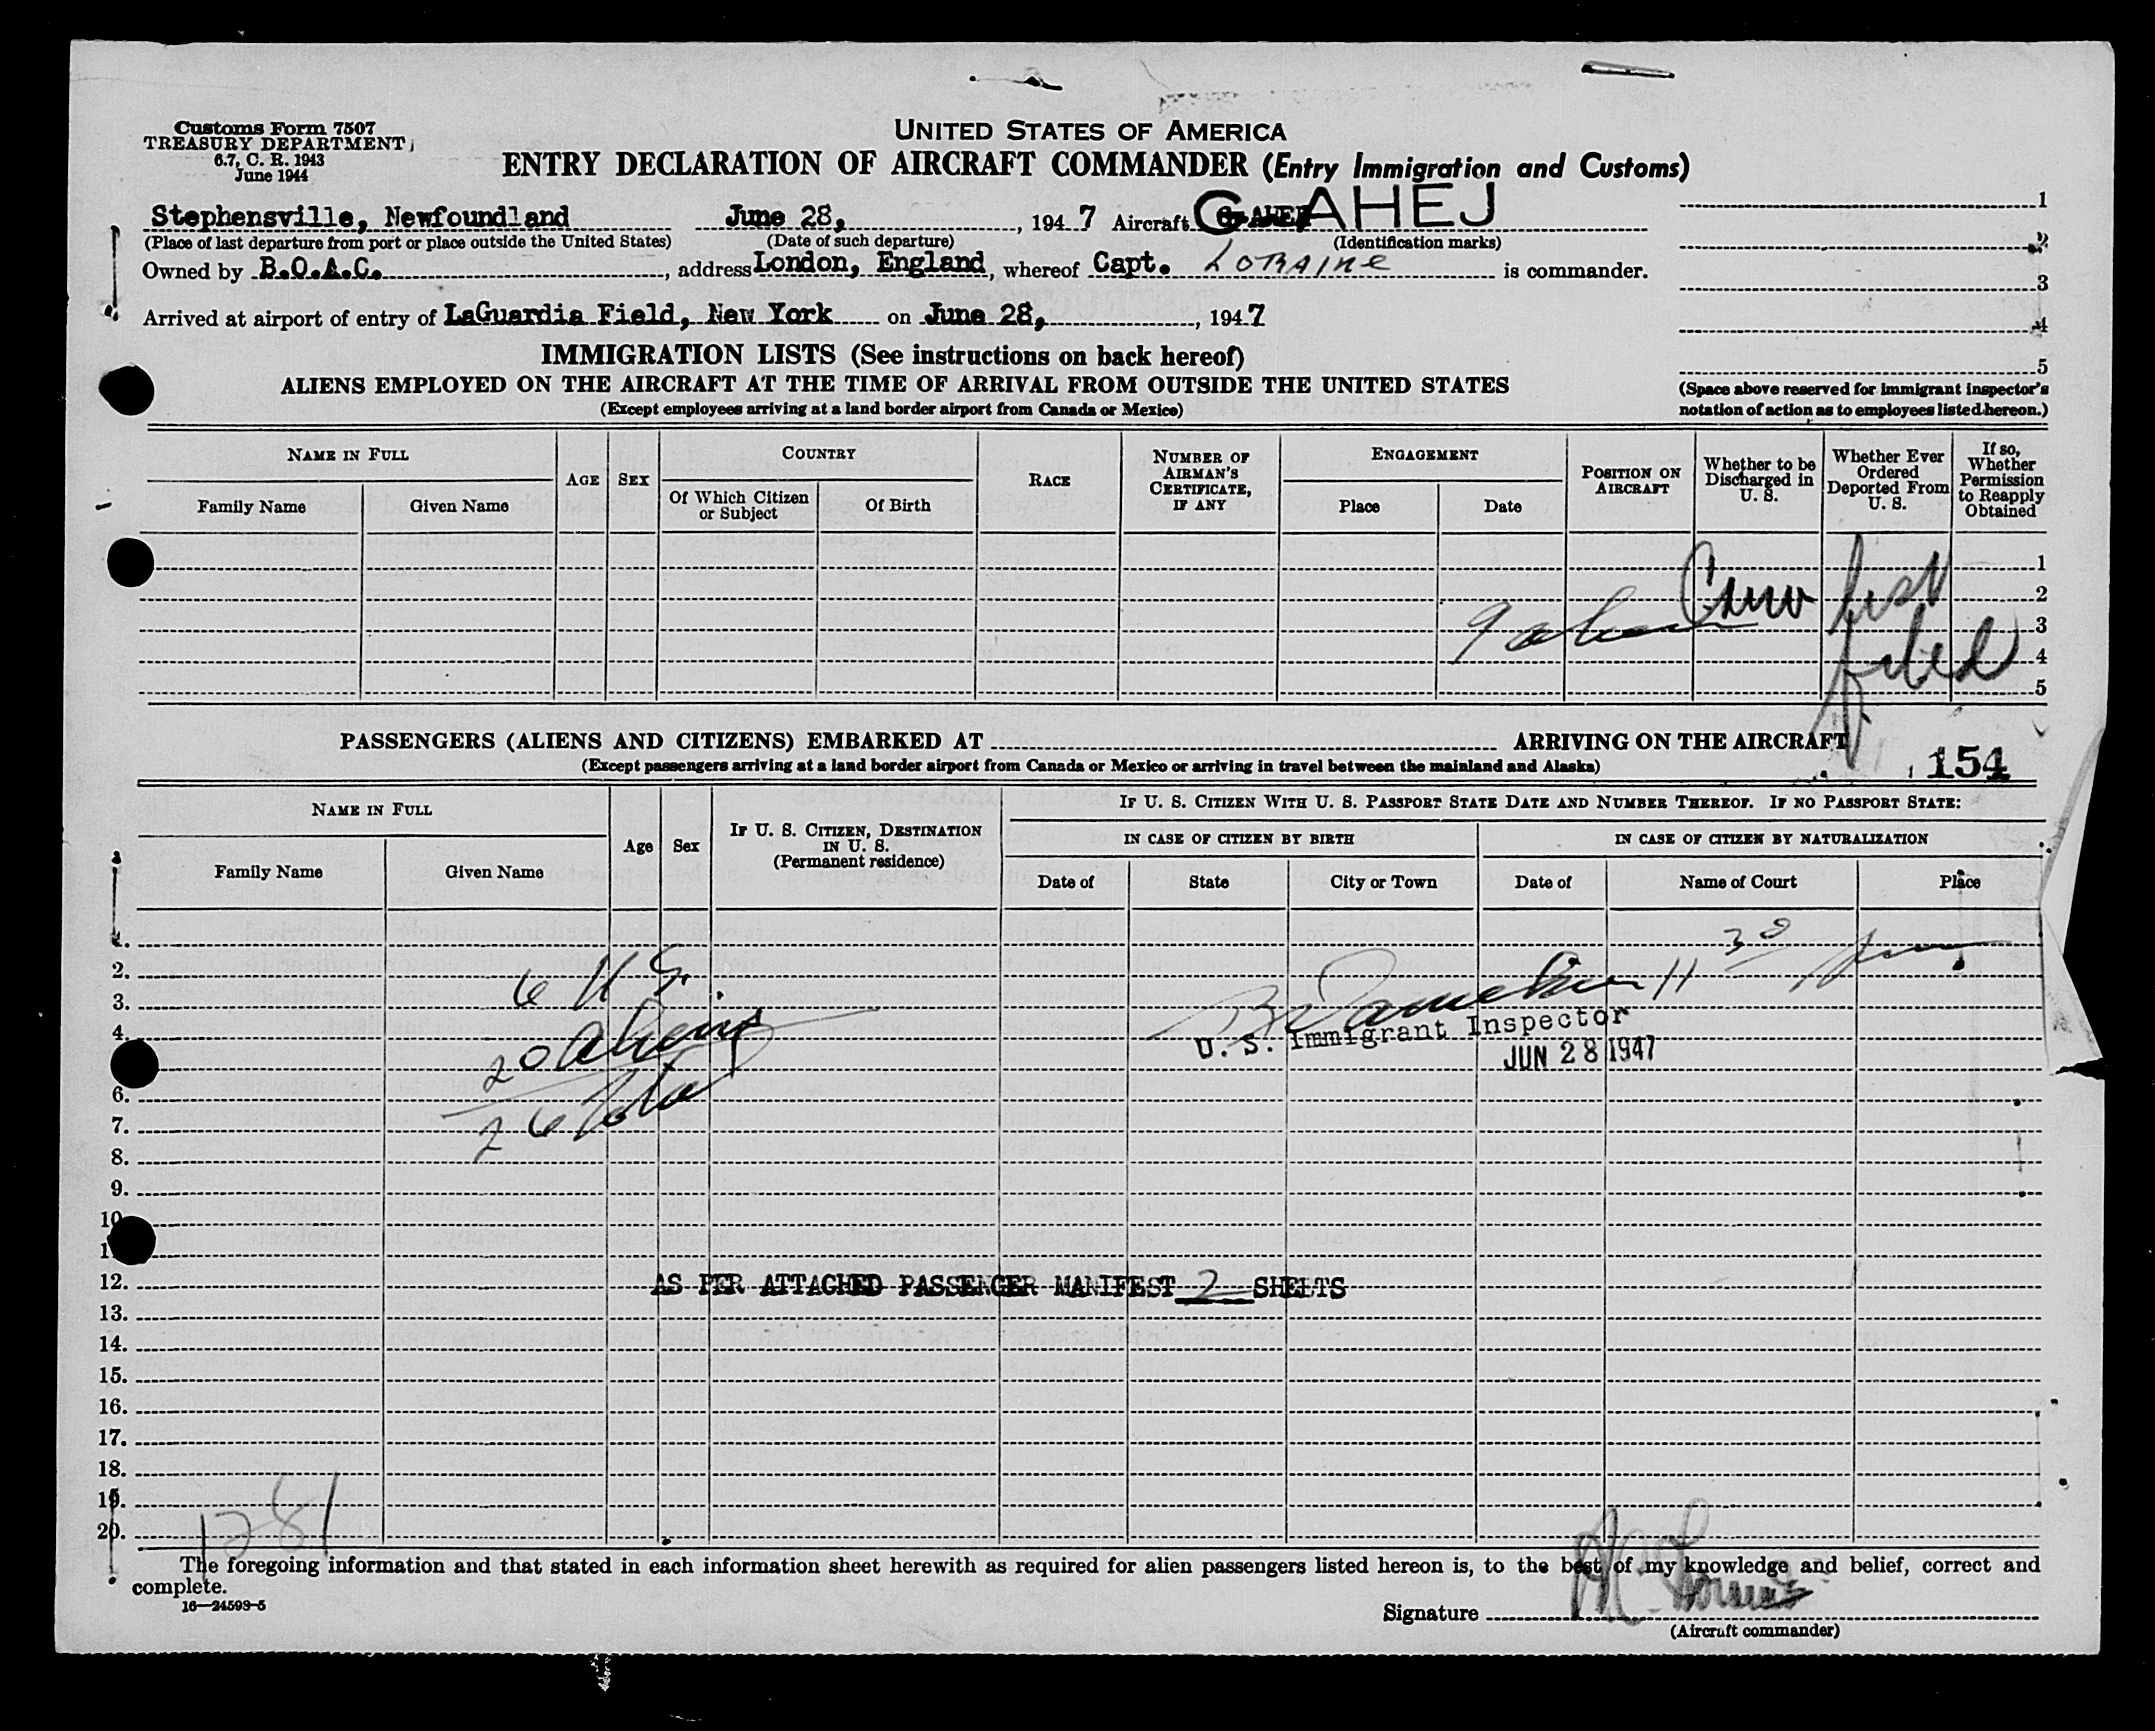 Customs Form 7507
TREASURY DEPARTMENT
6.7, C. R. 1943
June 1944
UNITED STATES OF AMERICA
ENTRY DECLARATION OF AIRCRAFT COMMANDER (Entry Immigration and Customs)
Stephensville, Newfoundland June 28, , 1947 Aircraft G AHEJ
(Place of last departure from port or place outside the United States) (Date of such departure) (Identification marks)
Owned by B.O.A.C. , address London, England, whereof Capt. LORAINE is commander.
Arrived at airport of entry of LaGuardia Field, New York on June 28, , 1947
1
2
3
4
5
(Space above reserved for immigrant inspector's
notation of action as to employees listed hereon.)
IMMIGRATION LISTS (See instructions on back hereof)
ALIENS EMPLOYED ON THE AIRCRAFT AT THE TIME OF ARRIVAL FROM OUTSIDE THE UNITED STATES
(Except employees arriving at a land border airport from Canada or Mexico)
NAME IN FULL
Family Name
Given Name
AGE
SEX
COUNTRY
Of Which Citizen
or Subject
Of Birth
RACE
NUMBER OF
AIRMAN'S
CERTIFICATE,
IF ANY
ENGAGEMENT
Place
Date
POSITION ON
AIRCRAFT
Whether to be
Discharged in
U. S.
Whether Ever
Ordered
Deported From
U. S.
If so,
Whether
Permission
to Reapply
Obtained
1
2
3
4
5
Crew list
filed
PASSENGERS (ALIENS AND CITIZENS) EMBARKED AT ARRIVING ON THE AIRCRAFT
(Except passengers arriving at a land border airport from Canada or Mexico or arriving in travel between the mainland and Alaska)
154
NAME IN FULL
Family Name
Given Name
Age
Sex
IF U. S. CITIZEN, DESTINATION
IN U. S.
(Permanent residence)
IF U. S. CITIZEN WITH U. S. PASSPORT STATE DATE AND NUMBER THEREOF. IF NO PASSPORT STATE:
IN CASE OF CITIZEN BY BIRTH
IN CASE OF CITIZEN BY NATURALIZATION
Date of
State
City or Town
Date of
Name of Court
Place
1.
2.
3.
4.
6.
7.
8.
9.
10
1
12.
13.
14.
15.
16.
17.
18.
19.
20.
20 aliens
26 Total
U. S. Immigrant Inspector
JUN 28 1947
AS PER ATTACHED PASSENGER MANIFEST 2 SHEETS
1281
The foregoing information and that stated in each information sheet herewith as required for alien passengers listed hereon is, to the best of my knowledge and belief, correct and
complete.
16—24593-5
Signature
(Aircraft commander)